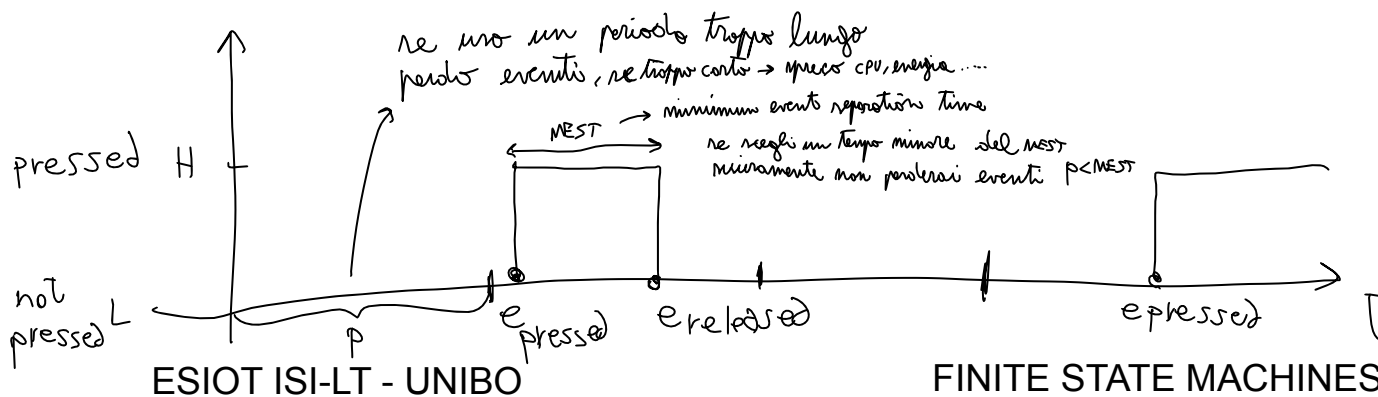 se uso un periodo troppo lungo
perdo eventi, se troppo corto → spreco CPU, energia.....
MEST → minimum event separation time
se scegli un tempo minore del MEST
sicuramente non perderai eventi p<MEST
pressed H
not pressed L
p
e pressed
e released
e pressed
ESIOT ISI-LT - UNIBO
FINITE STATE MACHINES